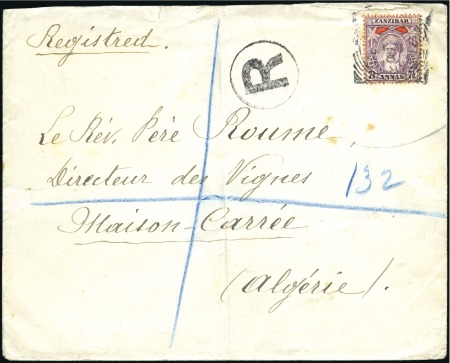 Registred.
R
ZANZIBAR
ANNAS
Le Rév. Père Roume,
Directeur des Vignes
132
Maison-Carrée
(Algérie).